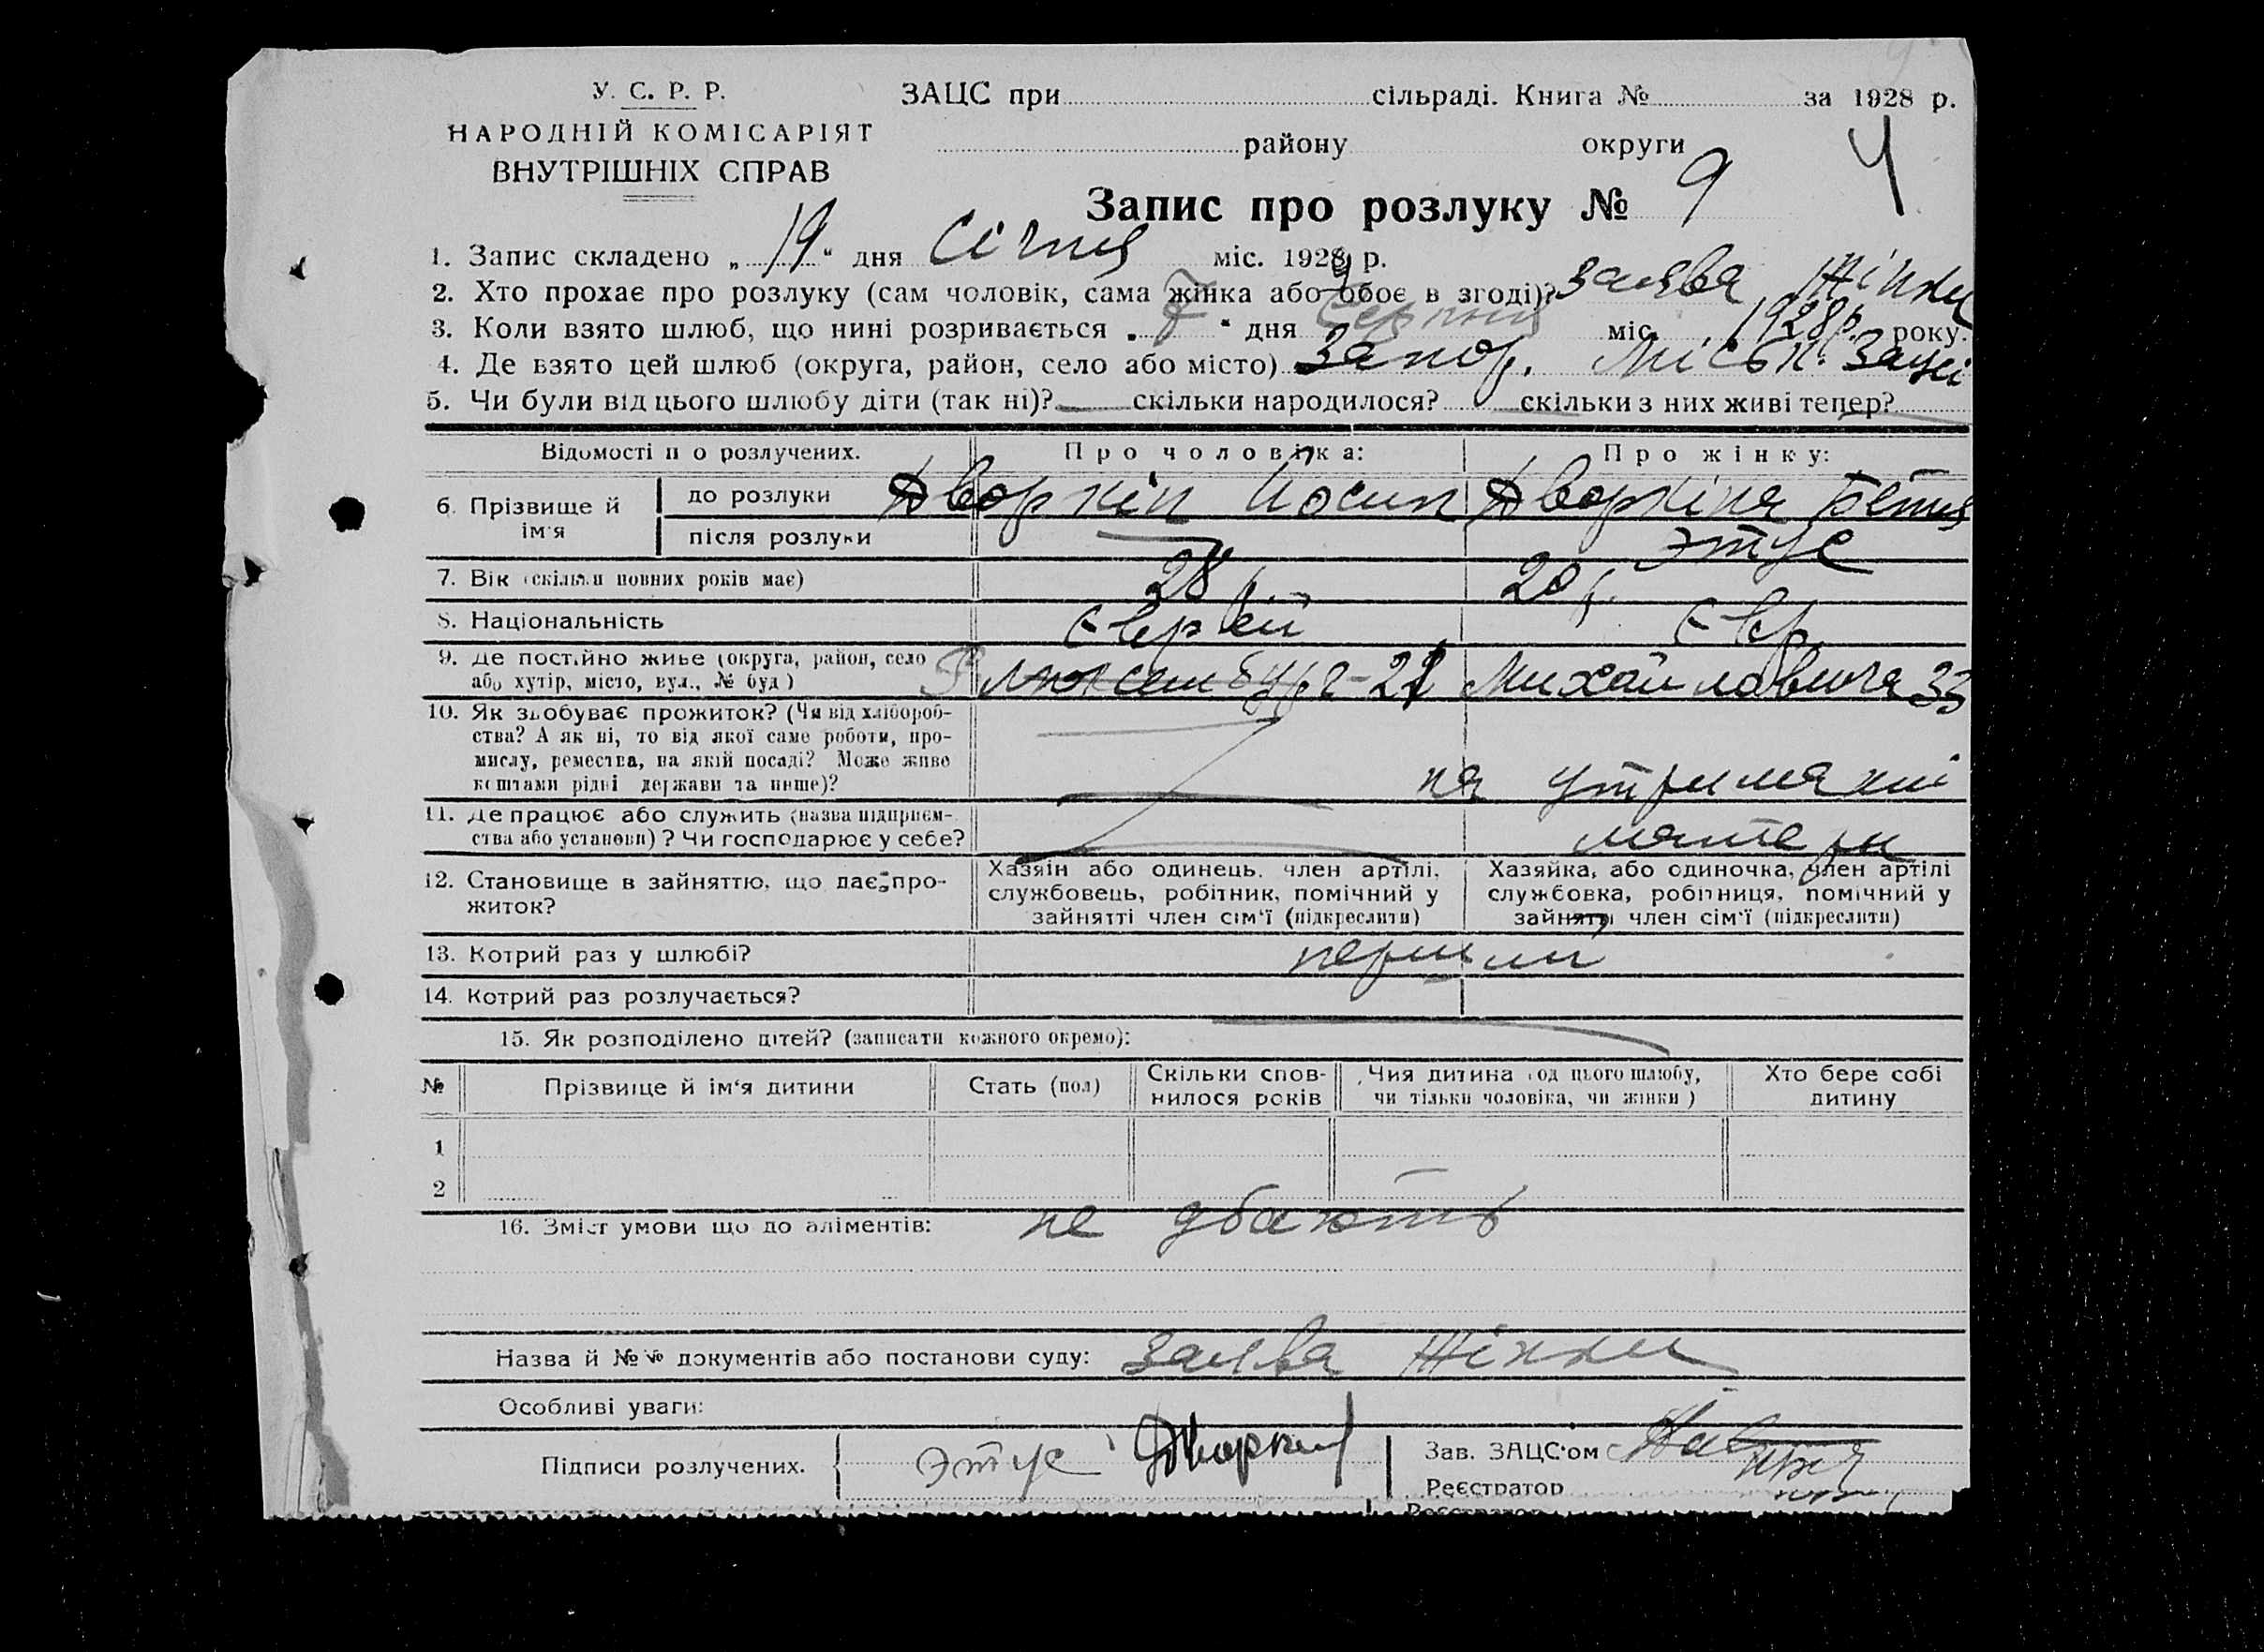 У. С. Р. Р.
НАРОДНІЙ КОМІСАРІЯТ
ВНУТРІШНІХ СПРАВ
ЗАЦС при сільраді. Книга № за 1928 р.
району округи
4
Запис про розлуку № 9
1. Запис складено „19“ дня Січня міс. 1929 р.
2. Хто прохає про розлуку (сам чоловік, сама жінка або обоє в згоді)? Заява Жінки
3. Коли взято шлюб, що нині розривається „7“ дня Серпня міс. 1928 р. року.
4. Де взято цей шлюб (округа, район, село або місто) Запор. Міськ. Зацсі
5. Чи були від цього шлюбу діти (так ні)? — скільки народилося? скільки з них живі тепер?
Відомості п о розлучених. Про чоловіка: Про жінку:
6. Прізвище й ім'я до розлуки Дворкін Йосип Дворкіна Бетя
після розлуки — Этус
7. Вік (скільки повних років має) 28 р. 20 р.
8. Національність Єврей Євр
9. Де постійно живе (округа, район, село або хутір, місто, вул., № буд) Р Люксембург-21 Михайловича 33
10. Як здобуває прожиток? (Чи від хлібороб-
ства? А як ні, то від якої саме роботи, про-
мислу, ремества, на якій посаді? Може живе
коштами рідні держави та инше)? на утриманні
11. Де працює або служить (назва підприєм-
ства або установи)? Чи господарює у себе? матери
12. Становище в зайняттю, що дає про-
житок?
Хазяїн або одинець, член артілі,
службовець, робітник, помічний у
зайнятті член сім'ї (підкреслити)
Хазяйка, або одиночка, член артілі
службовка, робітниця, помічний у
зайнятті член сім'ї (підкреслити)
13. Котрий раз у шлюбі? перший
14. Котрий раз розлучається?
15. Як розподілено дітей? (записати кожного окремо):
№ Прізвище й ім'я дитини Стать (пол) Скільки спов-
нилося років Чия дитина (од цього шлюбу,
чи тільки чоловіка, чи жінки) Хто бере собі
дитину
1
2
16. Зміст умови що до аліментів: не дбають
Назва й №№ документів або постанови суду: Заява Жінки
Особливі уваги:
Підписи розлучених. Этус Дворкин
Зав. ЗАЦС'ом
Реєстратор
Реєстратор